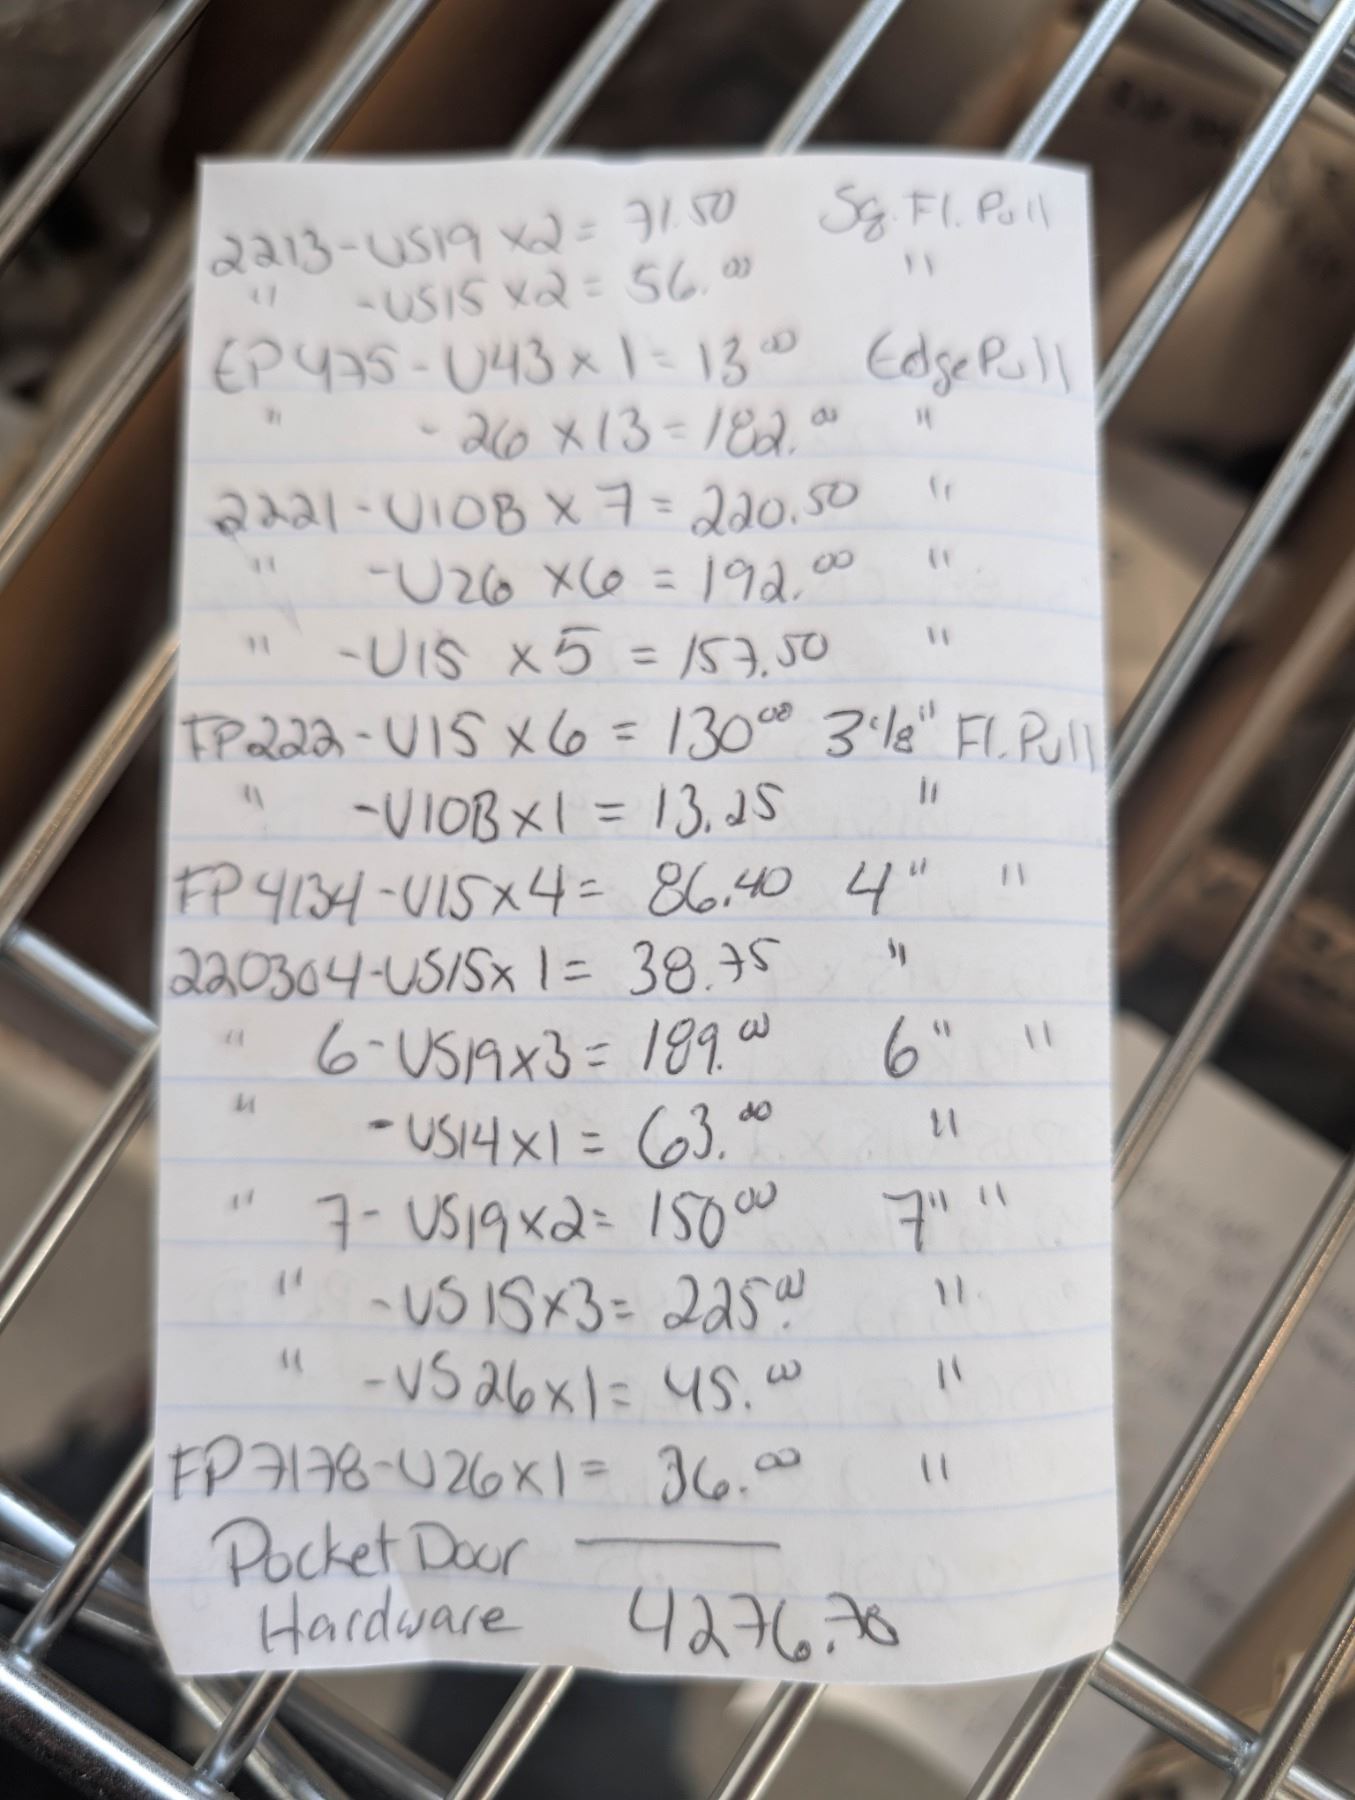 2213-US19 x2= 71.50 Sq. Fl. Pull
" -US15 x2= 56.00 "
EP475-U43 x 1= 13 00 Edge Pull
" -26 x 13= 182.00 "
2221-U10B x 7= 220.50 "
" -U26 x6 = 192.00 "
" -U15 x 5 = 157.50 "
FP222-U15 x 6 = 130 00 3 1/8" Fl. Pull
" -U10B x 1 = 13.25 "
FP4134-U15 x 4= 86.40 4" "
220304-US15 x 1= 38.75 "
" 6-US19 x 3= 189.00 6" "
" -US14 x 1= 63.00 "
" 7- US19 x 2= 150 00 7" "
" -US15 x 3= 225.00 "
" -US26 x 1= 45.00 "
FP7178-U26 x 1= 36.00 "
Pocket Door
Hardware 4276.78